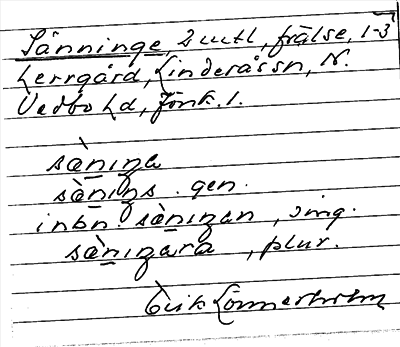 Sänninge, 2 mtl, frälse, 1-3
Herrgård, Linderås sn, N.
Vedbo hd, Jönk. l.
sæ̀niŋa
sæ̀niŋs. gen.
inbn. sæ̀niŋan, sing.
sæ̀niŋara, plur.
Erik Lönnerholm